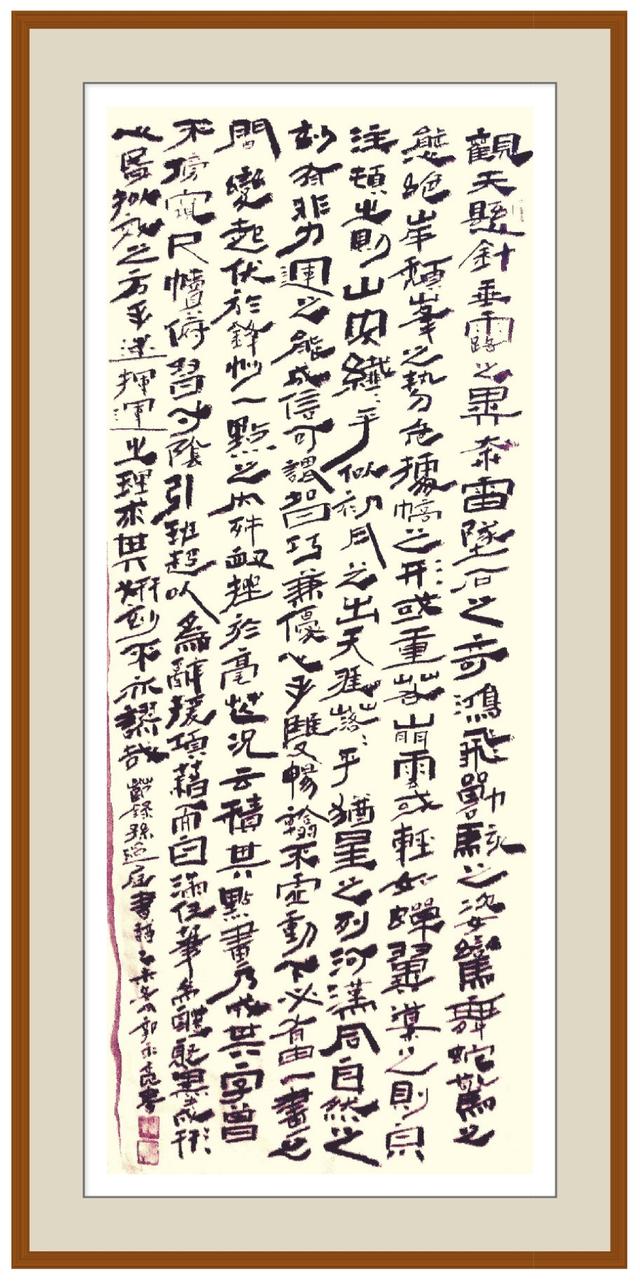 觀夫懸針垂露之異奔雷墜石之奇鴻飛獸駭之姿鸞舞蛇驚之
態絕岸頹峯之勢危據槁之形或重若崩雲或輕如蟬翼導之則泉
注頓之則山安纖:乎似初月之出天涯落:乎猶星之列河漢同自然之
妙有非力運之能成信可謂智巧兼優心手雙暢翰不虛動下必有由一畫之
間變起伏於鋒杪一點之內殊衄挫於毫芒況云積其點畫乃成其字曾
不傍窺尺牘俯習寸陰引班超以為辭援項籍而自滿任筆為體聚墨成形
心昏擬效之方手迷揮運之理求其妍妙不亦謬哉 節錄孫過庭書譜乙未